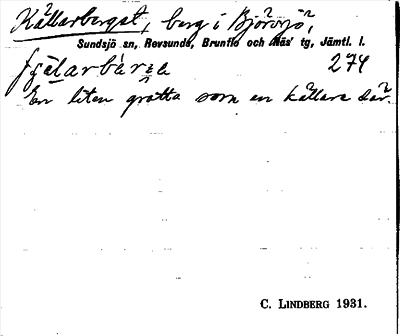 Källarberget, berg i Björsjö,
Sundsjö sn, Revsunds, Brunflo och Näs' tg, Jämtl. l.
274
En liten grotta som en källare där.
C. LINDBERG 1931.